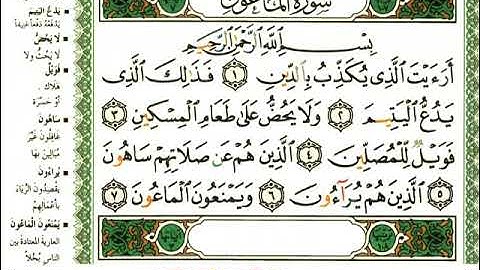 سُورَةُ المَاعُونِ
بِسْمِ ٱللَّهِ ٱلرَّحْمَٰنِ ٱلرَّحِيمِ
أَرَءَيْتَ ٱلَّذِى يُكَذِّبُ بِٱلدِّينِ ١ فَذَٰلِكَ ٱلَّذِى
يَدُعُّ ٱلْيَتِيمَ ٢ وَلَا يَحُضُّ عَلَىٰ طَعَامِ ٱلْمِسْكِينِ ٣
فَوَيْلٌ لِّلْمُصَلِّينَ ٤ ٱلَّذِينَ هُمْ عَن صَلَاتِهِمْ سَاهُونَ
٥ ٱلَّذِينَ هُمْ يُرَآءُونَ ٦ وَيَمْنَعُونَ ٱلْمَاعُونَ ٧
يَدُعُّ اليَتِيمَ
يَدْفَعُهُ دَفْعاً عَنِيفاً
لَا يَحُضُّ
لَا يَحُثُّ وَلَا
فَوَيْلٌ
هَلَاكٌ
أَوْ حَسْرَةٌ
سَاهُونَ
غَافِلُونَ غَيْرُ
مُبَالِينَ بِهَا
يُرَاءُونَ
يَقْصِدُونَ الرِّيَاءَ
بِأَعْمَالِهِمْ
يَمْنَعُونَ المَاعُونَ
العارية المعتادة بين
الناس بُخْلاً